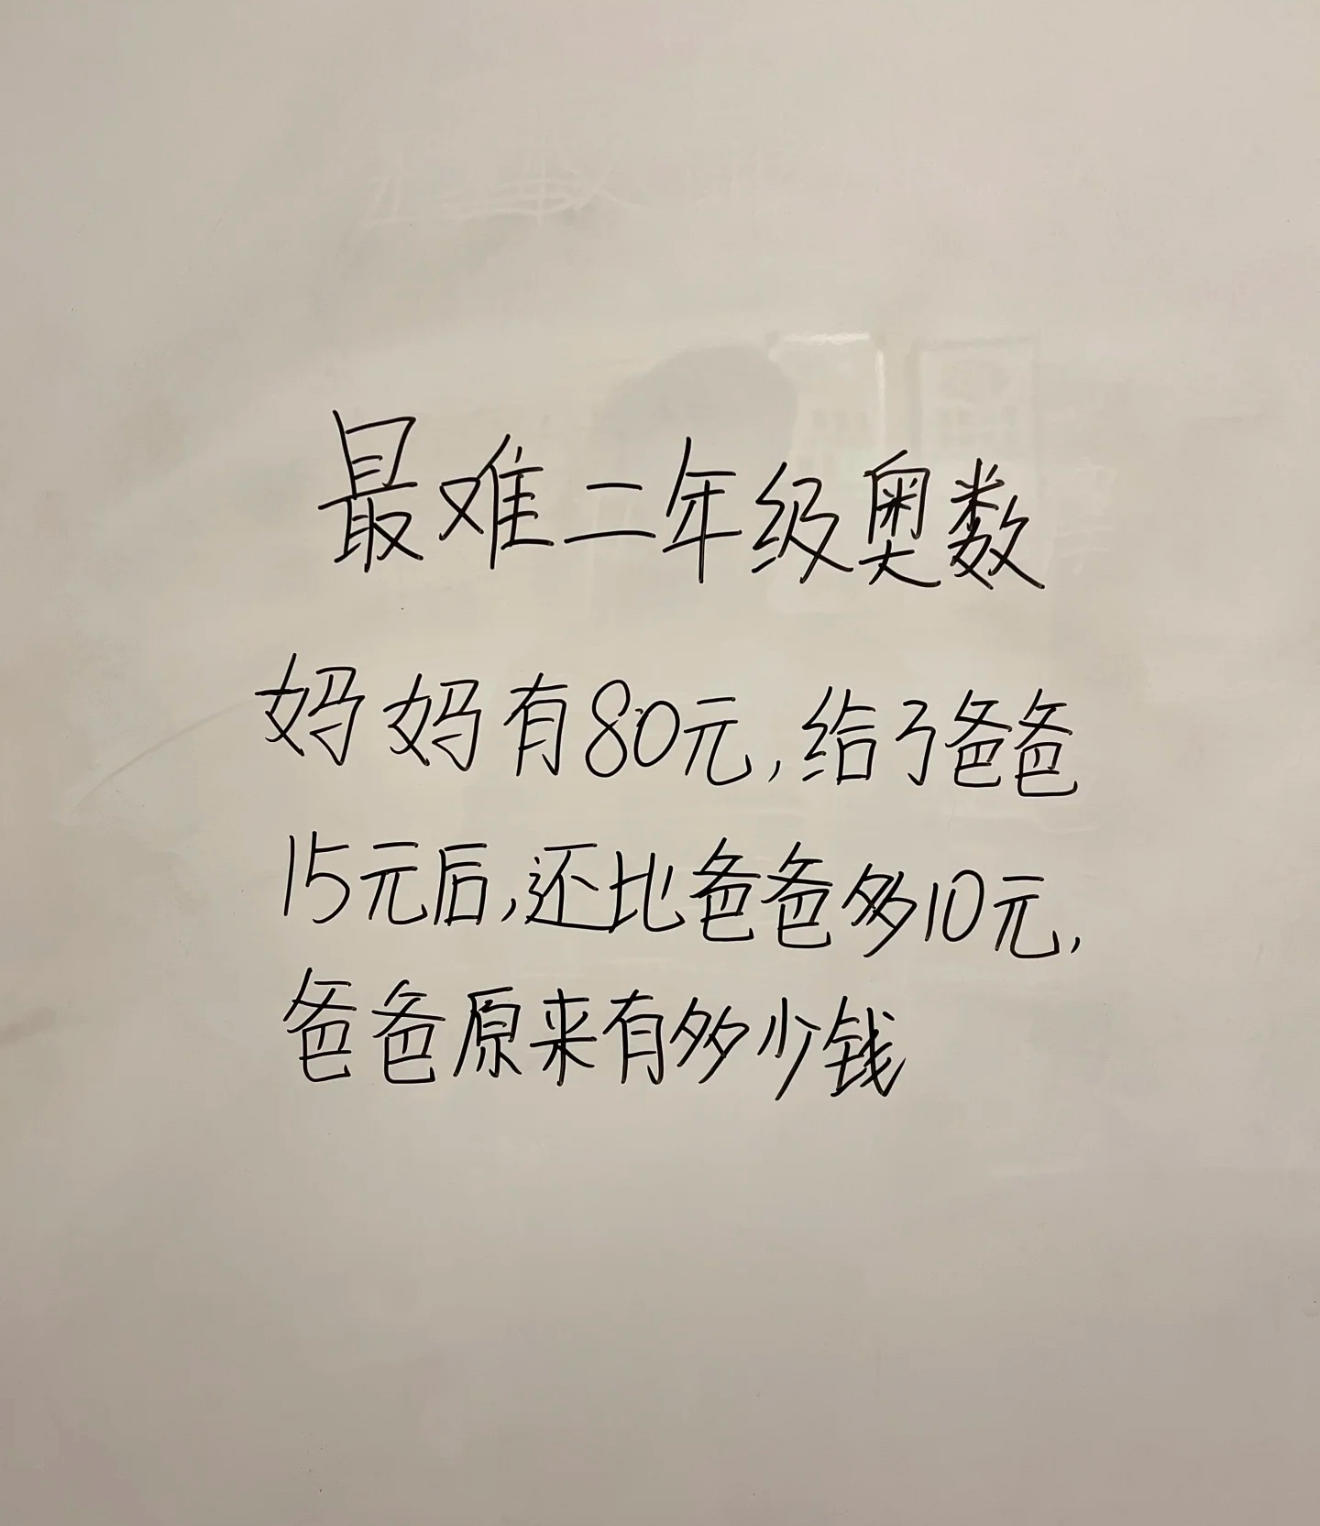 最难二年级奥数
妈妈有80元,给了爸爸
15元后,还比爸爸多10元,
爸爸原来有多少钱